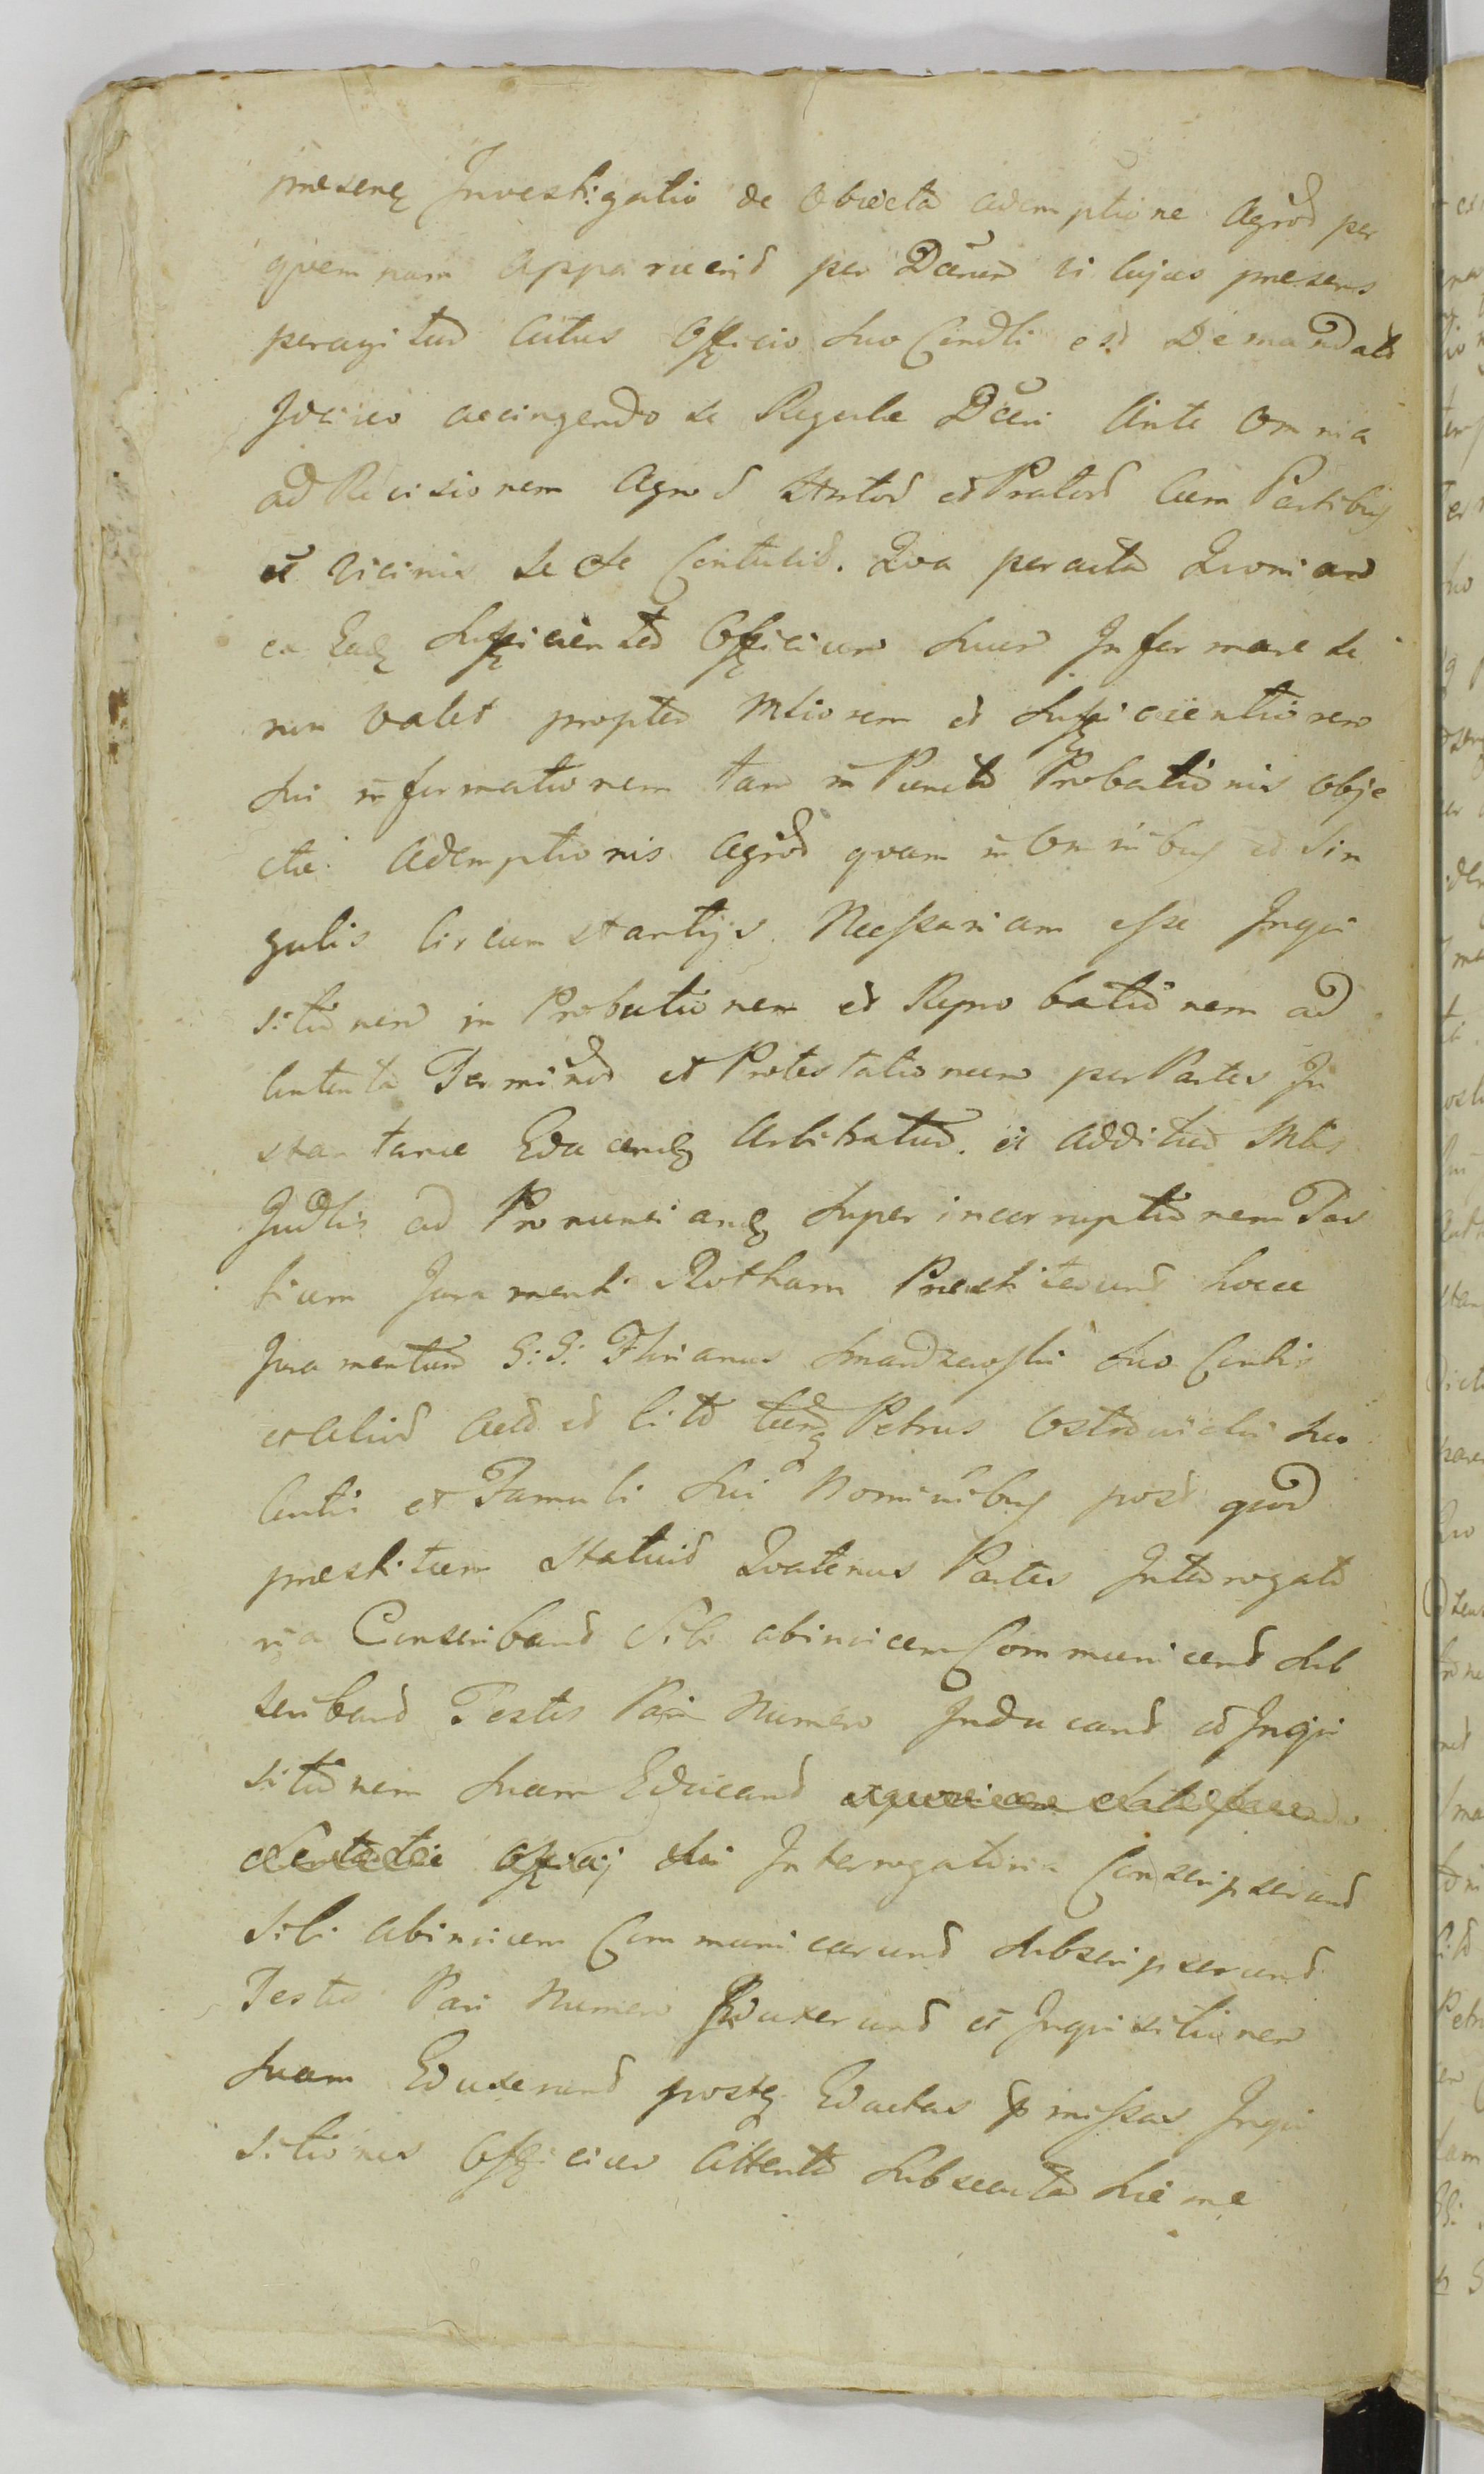 præsens Investigatio de Obiecta ademptione Agrod per
qvem nam apparuerid per Dcrum vi cujus præsens
peragitud Actus Officio Suo Cindli est Demandata
Idcirco accingendo se Regulæ Dcri Ante Omnia
ad Revisionem Agrod Hortod et Pratord Cum Partibus
et Vicinis Sese Contulid. Qva peracta Qvoniam
ex Eadq Sufficiented Officium Suum Informare se
non Valet propted Mliorem et Sufficientiorem
Sui informationem tam in Puncto Probationis obje
ctæ Ademptionis Agrod qvam in Omnibus et Sin
gulis Circumstantijs Necessariam esse Inqvi
sitionem in Probationem et Reprobationem ad
Contenta Terminod et Protestationum per Partes In
stantaneæ Educendq Arbitratud. et Additud Mtis
Judlis ad Pronunciandq Super incorruptionem Tes
tium Juramenti Rotham Præstiterund hocce
Juramentum G: G: Florianus Smardzewski Suo Contis
et Aliod Actod et Citod tum Petrus Ostrowicki Suo
Contis et Famuli Sui Nominibus post qvod
præstitum Statuid Qvatenus Partes Interrogato
ria Conscriband Sibi abinvicem Communicend Sub
scriband Testes Pari Numero Inducand et Inqvi
sitionem Suam Educand
Officij Sui Interrogatoria Conscripserund
Sibi abinvicem Communicarund Subscripserund
Testes Pari Numero Induxerund et Inqvisitionem
Suam Eduxerund postq Eductas præmissas Inqvi
sitiones Officium Attenta Subsecuta Hieme